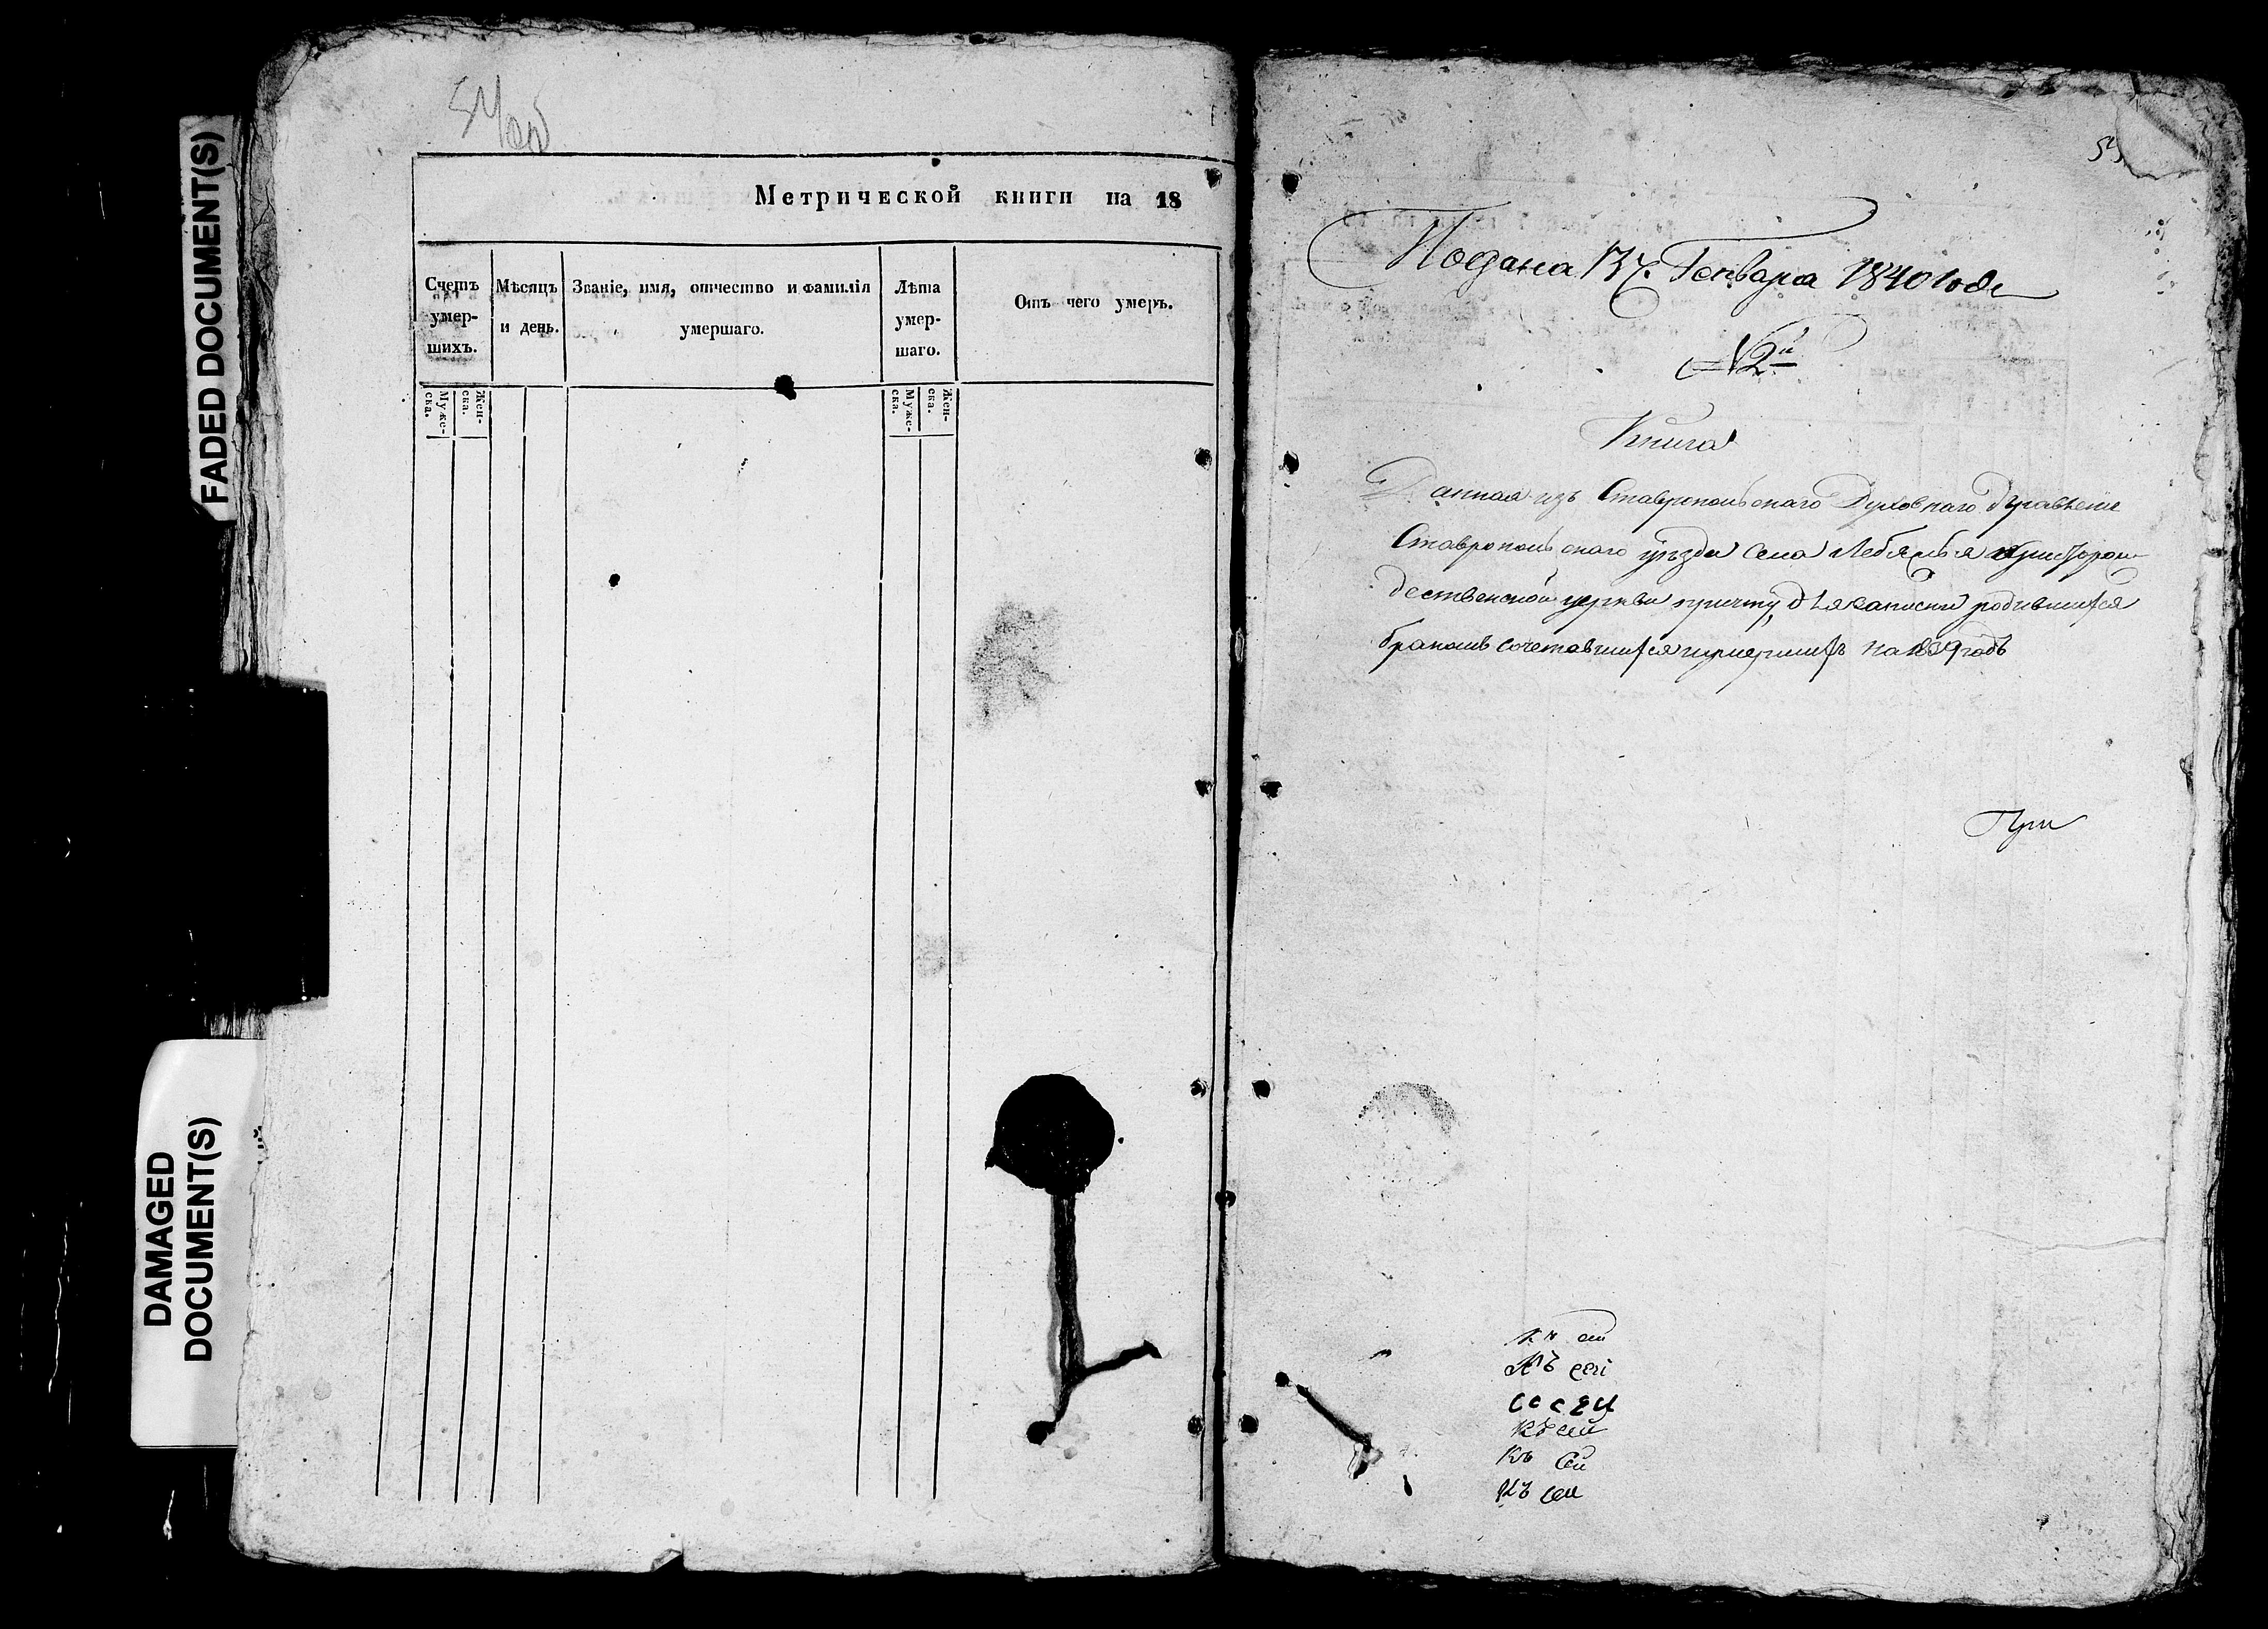 FADED DOCUMENT(S)
DAMAGED
DOCUMENT(S)
54/об
Метрической книги на 18
Счетъ
умер-
шихъ.
Мѣсяцъ
и день.
Званіе, имя, отчество и фамилія
умершаго.
Лѣта
умер-
шаго.
Отъ чего умеръ.
Муже-
ска.
Жен-
ска.
Муже-
ска.
Жен-
ска.
Подана Генваря 1840 года
№ 2й
Книга
Данная изъ Ставропольскаго Духовнаго Правленіе
Ставропольскаго уѣзда села Лебяжья Христорож
дественской церкви причту, для записки родившихся
бракомъ сочетавшихся и умершихъ на 1839 годъ
При
Къ сей
Къ сей
Къ сей
Къ сей
Къ сей